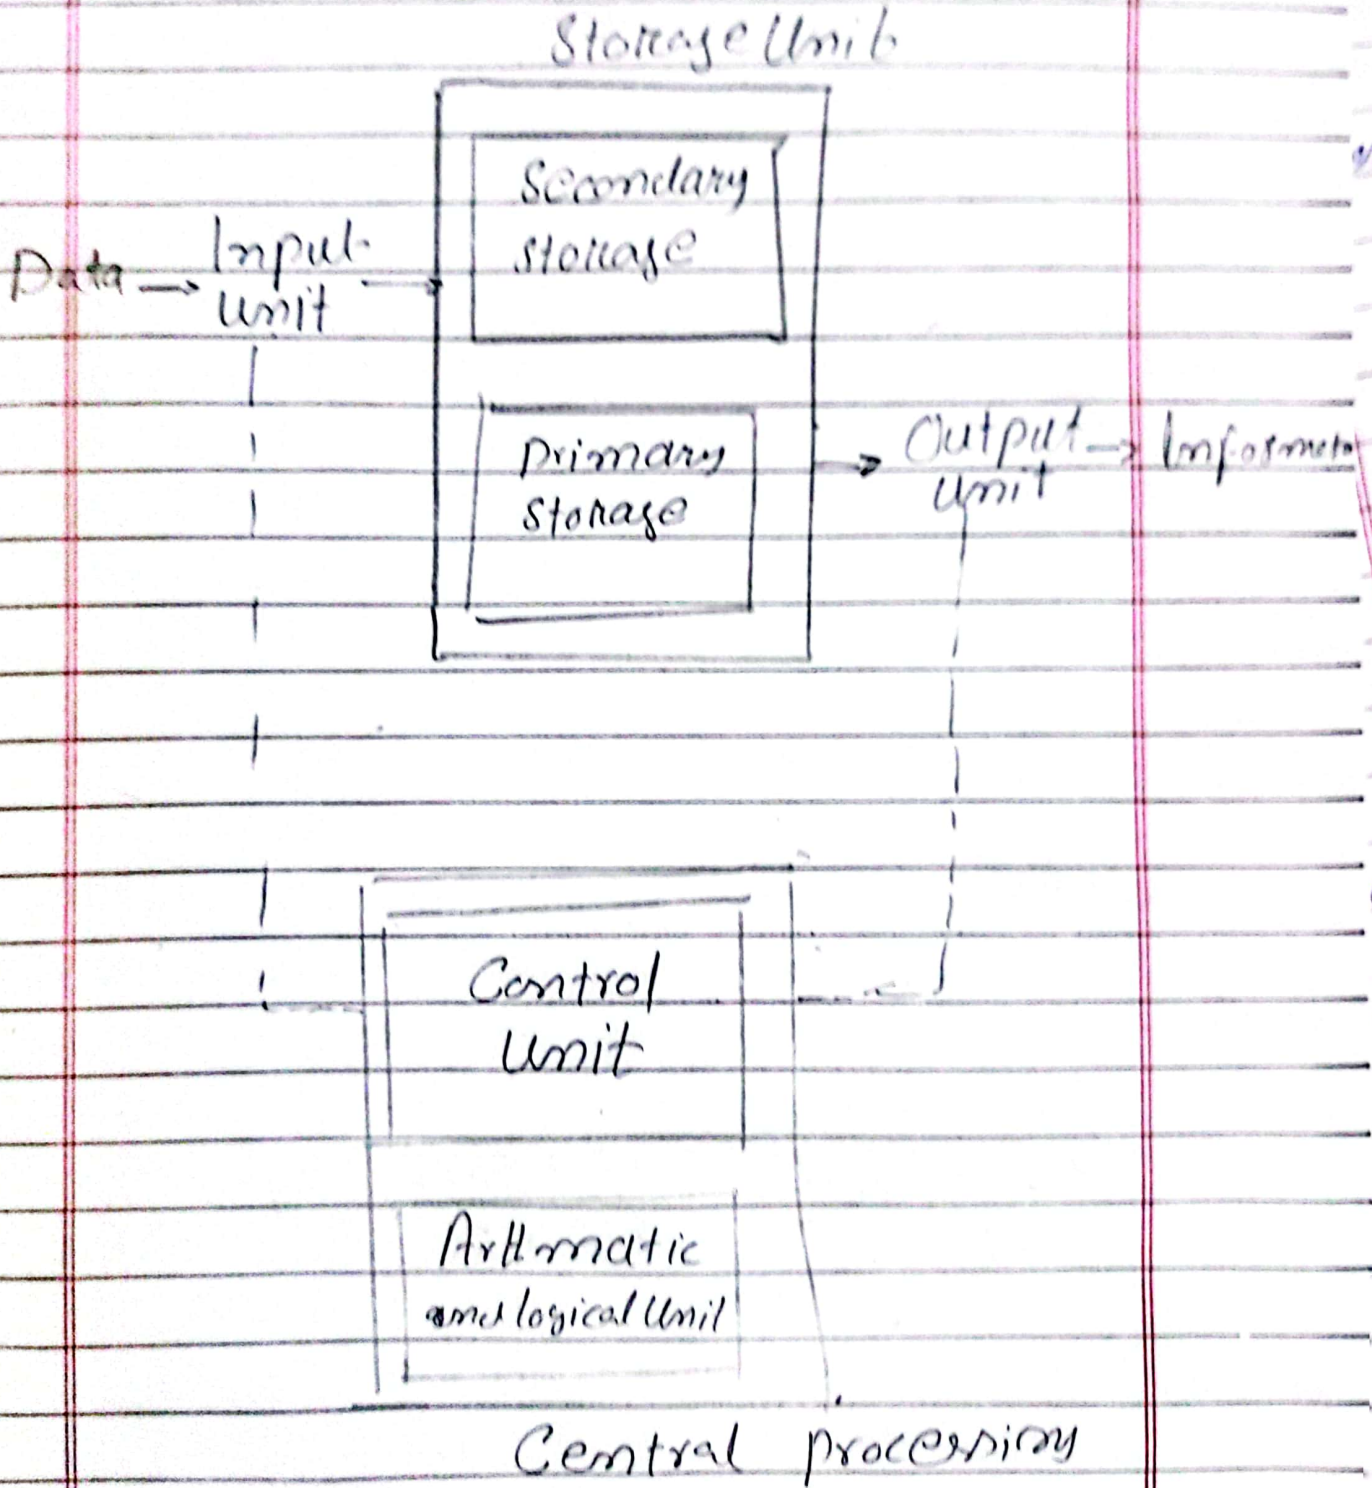 Storage Unit
Secondary
storage
Data → Input
unit
Primary
storage
Output → Informat
unit
Control
unit
Arthmatic
and logical Unit
Central processing